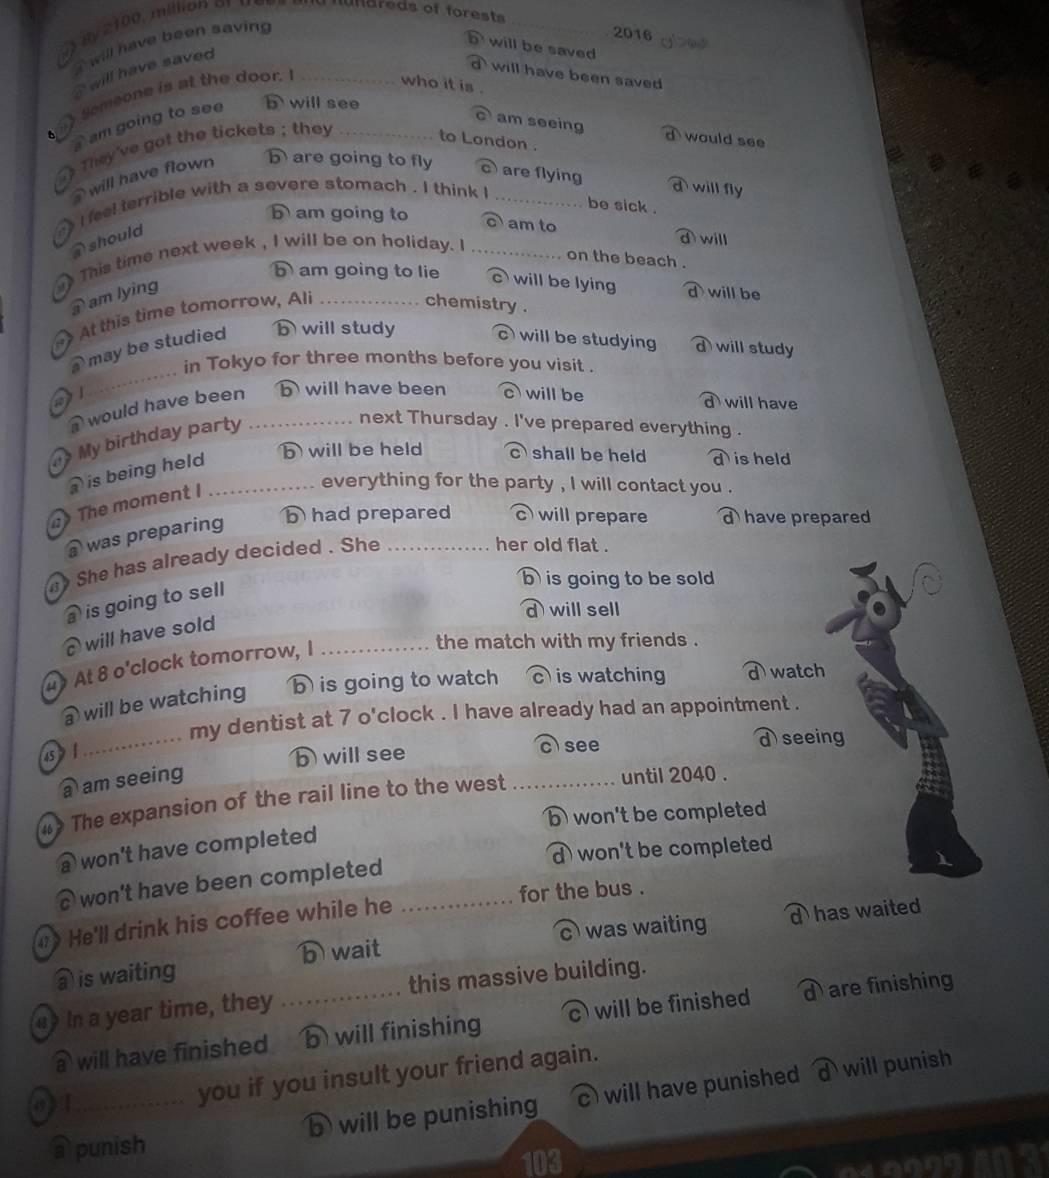 By 2100, million of trees and hundreds of forests .............. . 2016
a will have been saving b will be saved
c will have saved d will have been saved
Someone is at the door. I .............. who it is .
a am going to see b will see c am seeing d would see
They've got the tickets ; they .............. to London .
a will have flown b are going to fly c are flying d will fly
I feel terrible with a severe stomach . I think I .............. be sick .
a should b am going to c am to d will
This time next week , I will be on holiday. I .............. on the beach .
a am lying b am going to lie c will be lying d will be
At this time tomorrow, Ali .............. chemistry .
a may be studied b will study c will be studying d will study
I .............. in Tokyo for three months before you visit .
a would have been b will have been c will be d will have
41 My birthday party .............. next Thursday . I've prepared everything .
a is being held b will be held c shall be held d is held
42 The moment I .............. everything for the party , I will contact you .
a was preparing b had prepared c will prepare d have prepared
43 She has already decided . She .............. her old flat .
a is going to sell b is going to be sold
c will have sold d will sell
44 At 8 o'clock tomorrow, I .............. the match with my friends .
a will be watching b is going to watch c is watching d watch
45 I .............. my dentist at 7 o'clock . I have already had an appointment .
a am seeing b will see c see d seeing
46 The expansion of the rail line to the west .............. until 2040 .
a won't have completed b won't be completed
c won't have been completed d won't be completed
47 He'll drink his coffee while he .............. for the bus .
a is waiting b wait c was waiting d has waited
48 In a year time, they .............. this massive building.
a will have finished b will finishing c will be finished d are finishing
49 I .............. you if you insult your friend again.
a punish b will be punishing c will have punished d will punish
103